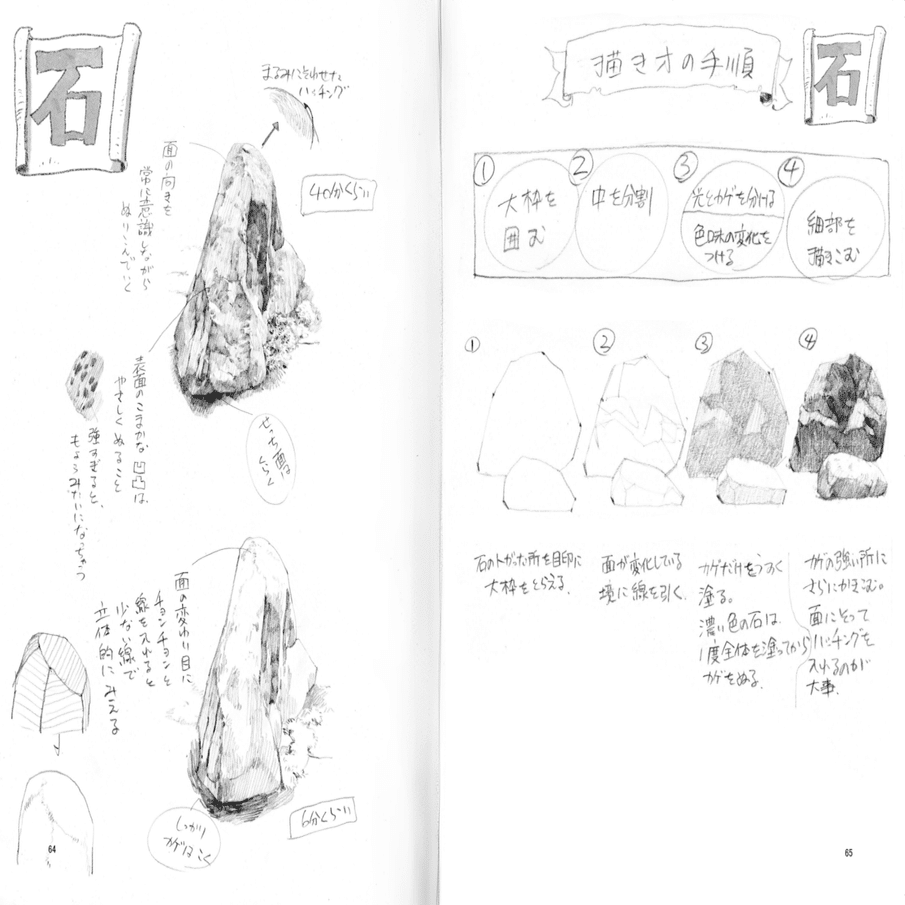 石
まるみにそわせた
ハッチング
40分くらい
面の向きを
常に意識しながら
ぬりこんでいく
表面のこまかな凹凸は
やさしくぬること
強すぎると、
もようみたいになっちゃう
せっち面は
くらく
面の変わり目に
チョンチョンと
線を入れると
少ない線で
立体的にみえる
しっかり
カゲはこく
6分くらい
64
描き方の手順
石
① ② ③ ④
大枠を
囲む
中を分割
光とカゲを分ける
色味の変化を
つける
細部を
描きこむ
① ② ③ ④
石のトガった所を目印に
大枠をとらえる.
面が変化している
境に線を引く.
カゲだけをうすく
塗る。
濃い色の石は、
1度全体を塗ってから
カゲをぬる.
カゲの強い所に
さらにかきこむ。
面にそって
ハッチングを
入れるのが
大事.
65